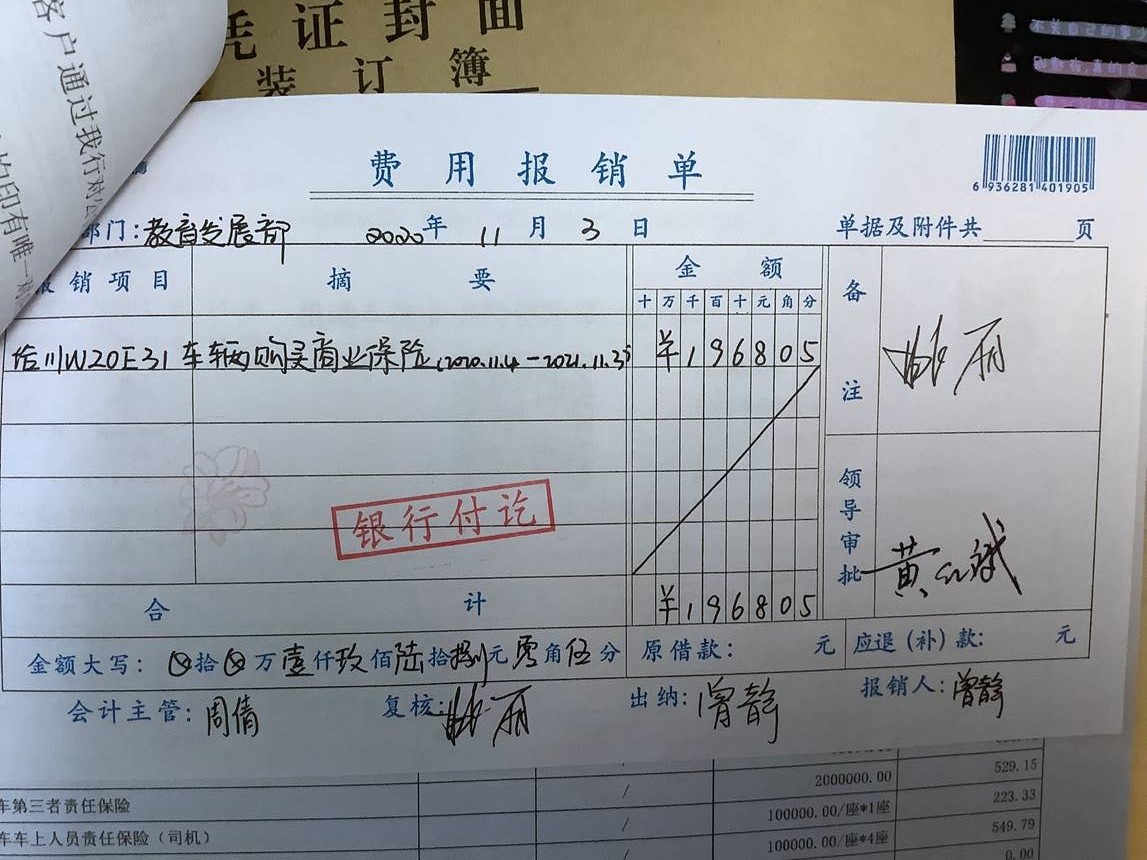 凭证封面
装订簿
客户通过我行对
的印有唯一
费用报销单
6 936281 401905
部门:教育发展部 2020年 11月 3日 单据及附件共 页
报销项目 摘要 金额 备注
十 万 千 百 十 元 角 分
给川W20E31车辆购买商业保险(2020.11.4-2021.11.3) ¥1 9 6 8 0 5
银行付讫
领导审批
合计 ¥1 9 6 8 0 5
金额大写: ⊗拾⊗万壹仟玖佰陆拾捌元零角伍分 原借款: 元 应退(补)款: 元
会计主管:周倩 复核: 出纳:曾静 报销人:曾静
2000000.00 529.15
车第三者责任保险 / 100000.00/座*1座 223.33
车车上人员责任保险(司机) / 100000.00/座*4座 549.79
0.00